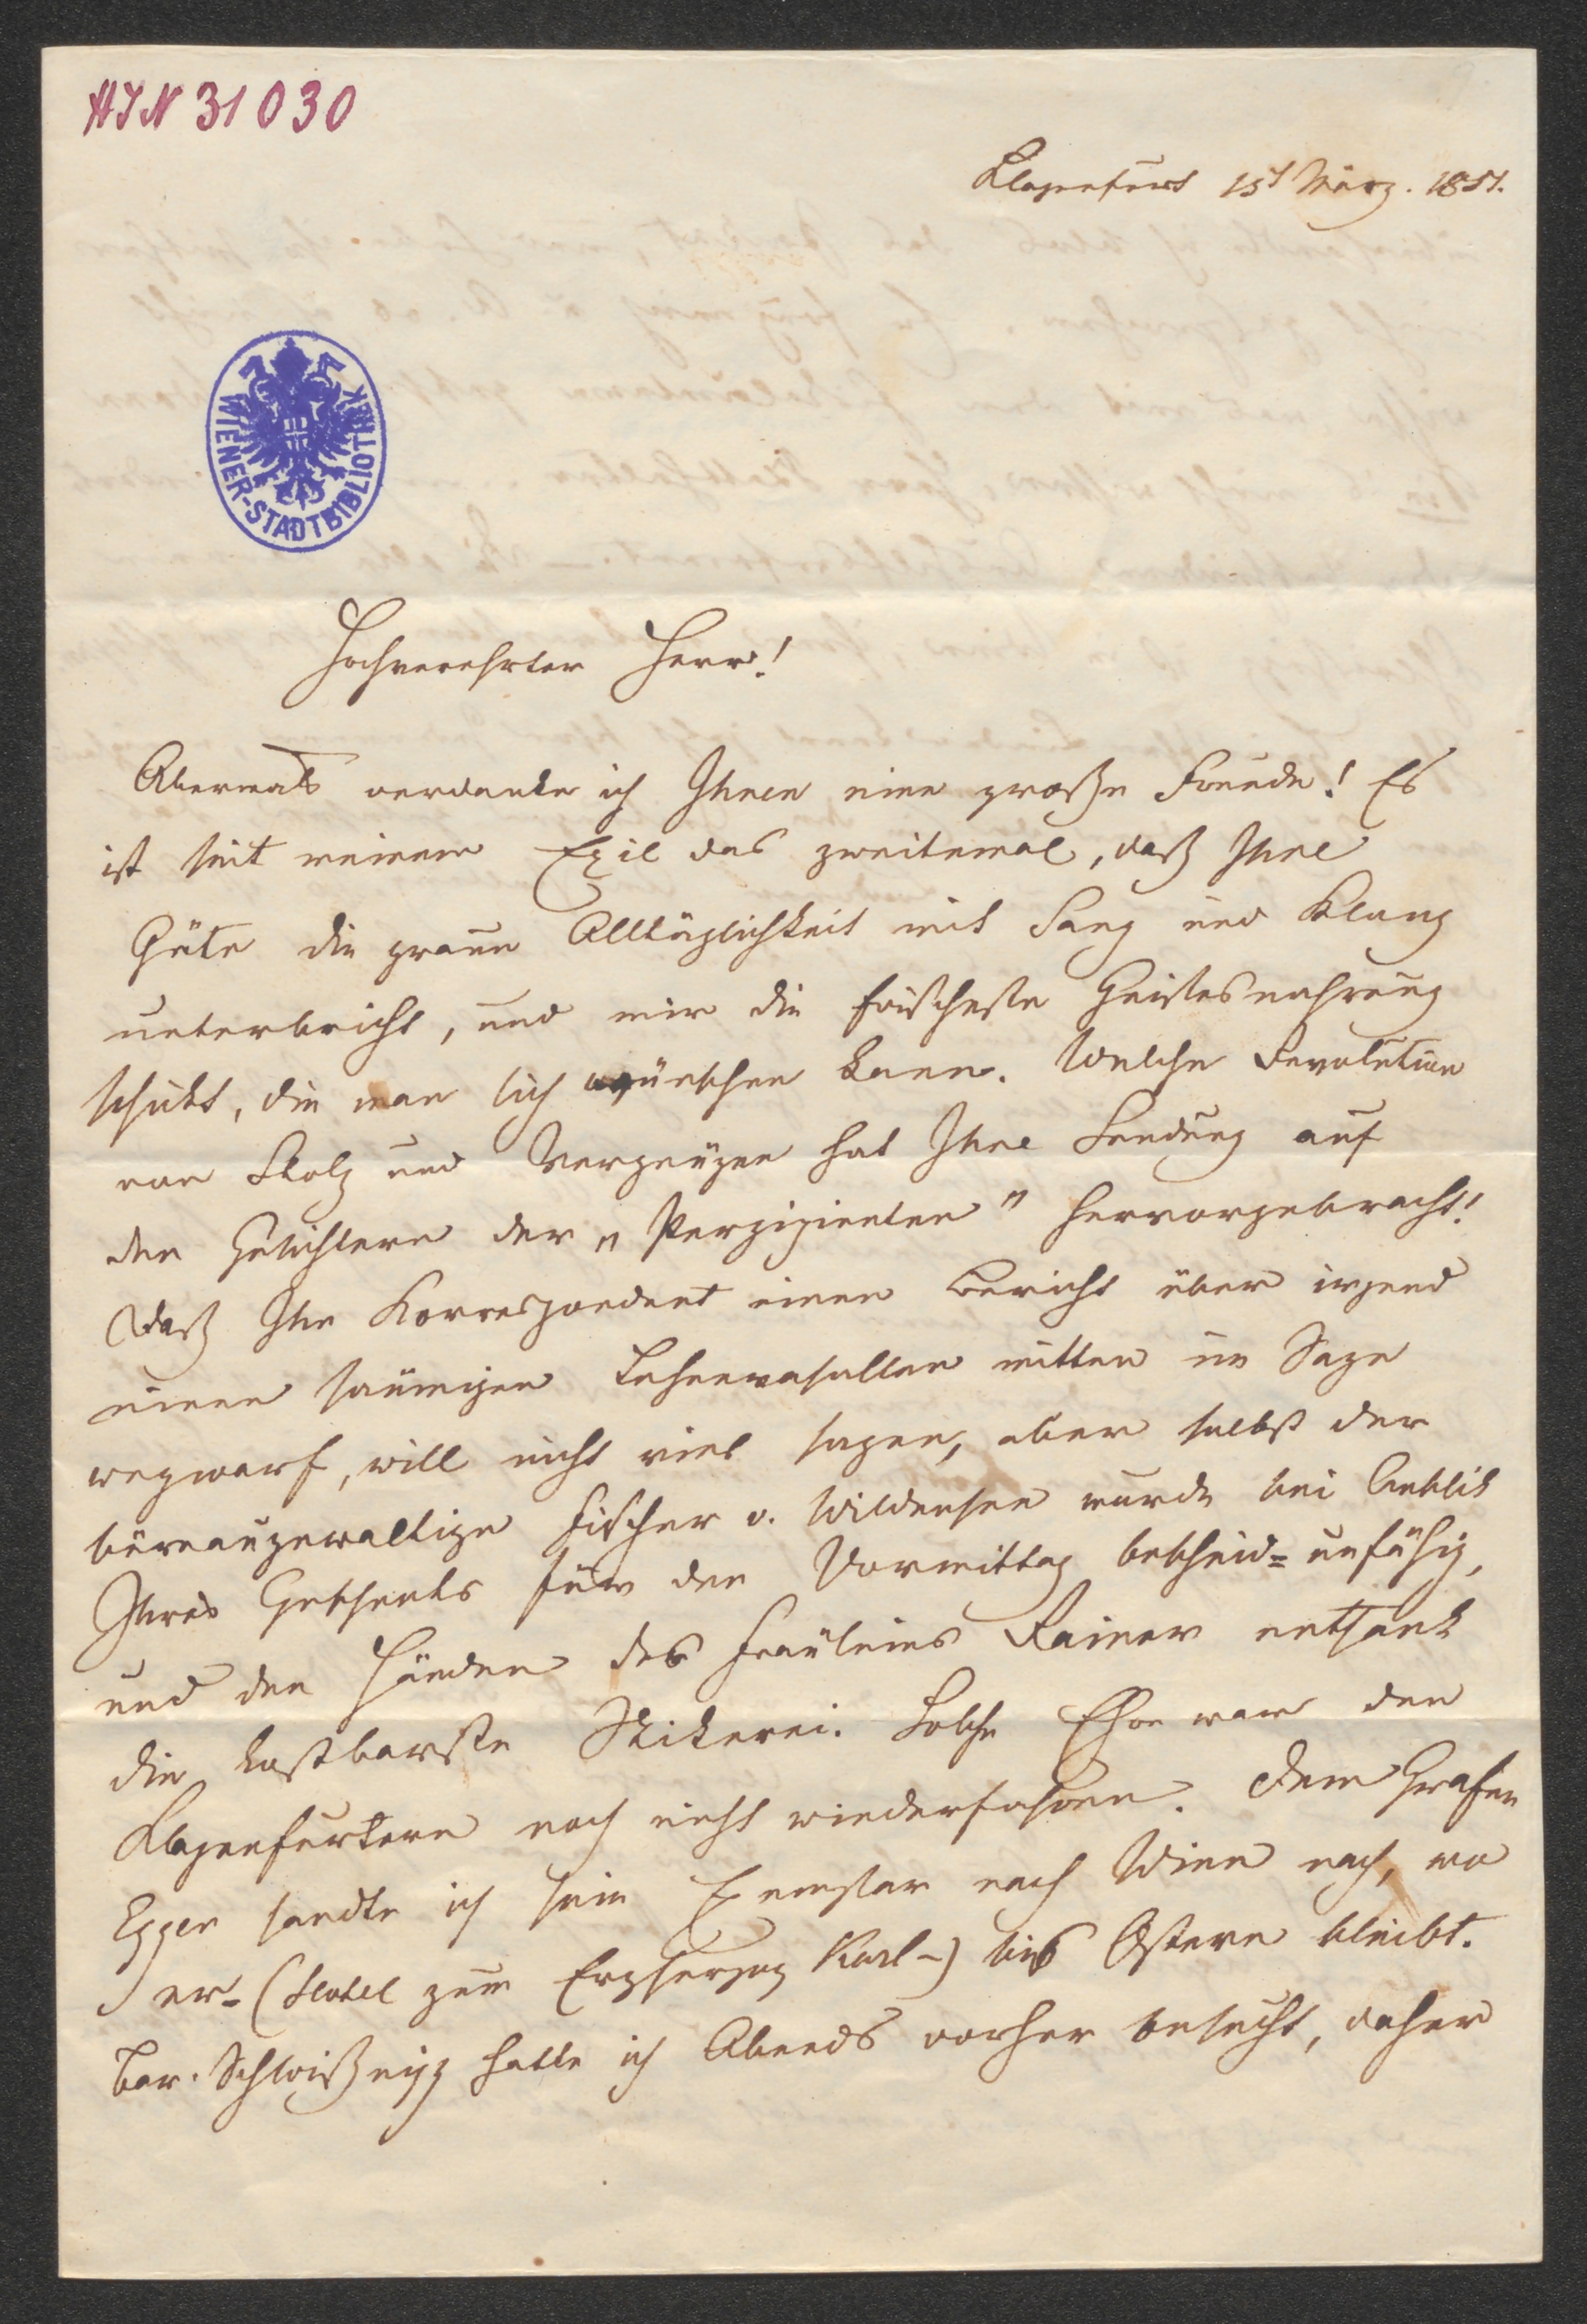 HIN 31030
Klagenfurt 15t März. 1851.
WIENER-STADTBIBLIOTHEK
Hochverehrter Herr!
Abermals verdanke ich Ihnen eine große Freude! Es
ist seit meinem Exil das zweitemal, daß Ihre
Güte die graue Alltäglichkeit mit Sang und Klang
unterbricht, und mir die frischeste Geistesnahrung
schickt, die man sich wünschen kann. Welche Revolution
von Stolz und Vergnügen hat Ihre Sendung auf
den Gesichtern der „Perzipienten" hervorgebracht!
Daß Ihr Korrespondent einen Bericht über irgend
einen säumigen Lehenvasallen mitten im Saze
wegwarf, will nicht viel sagen, aber selbst der
büreaugewaltige Fischer v. Wildensee wurde bei Anblik
Ihres Geschenks für den Vormittag bescheid=unfähig,
und den Händen des Fräuleins Rainer entsank
die kostbarste Stikerei. Solche Ehre war den
Klagenfurtern noch nicht wiederfahren. Dem Grafen
Egger sandte ich sein Exemplar nach Wien nach, wo
er- (Hotel zum Erzherzog Karl-) bis Ostern bleibt.
Bar. Schloißnigg hatte ich Abends vorher besucht, daher